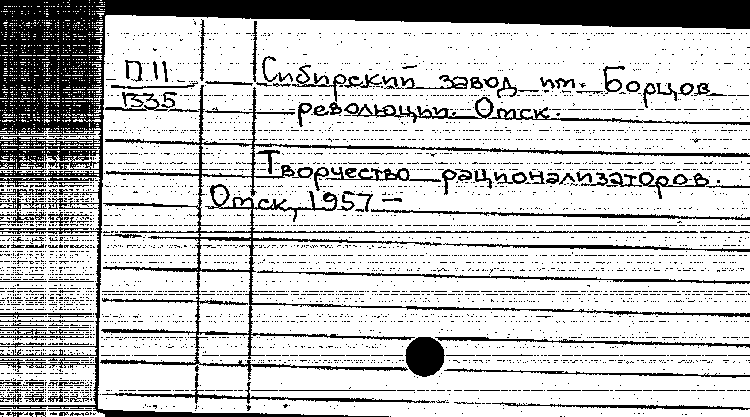 П 11 Сибирский завод им. Борцов
В35 революции. Омск.
Творчество рационализаторов.
Омск, 1957 –